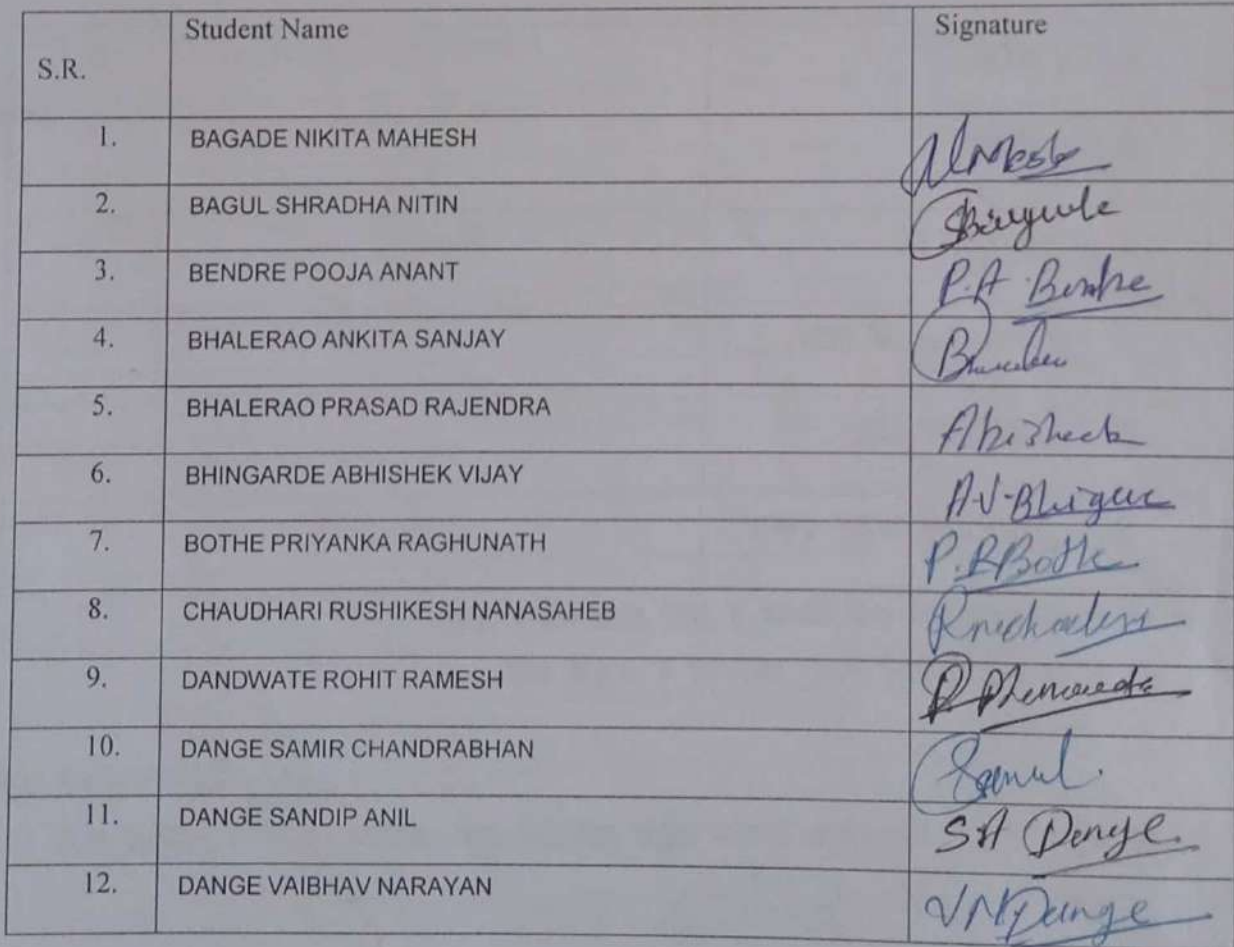 Student Name Signature
S.R.
1. BAGADE NIKITA MAHESH
2. BAGUL SHRADHA NITIN
3. BENDRE POOJA ANANT P.A Bendre
4. BHALERAO ANKITA SANJAY
5. BHALERAO PRASAD RAJENDRA
6. BHINGARDE ABHISHEK VIJAY
7. BOTHE PRIYANKA RAGHUNATH P.R Bothe
8. CHAUDHARI RUSHIKESH NANASAHEB
9. DANDWATE ROHIT RAMESH
10. DANGE SAMIR CHANDRABHAN
11. DANGE SANDIP ANIL SA Dange
12. DANGE VAIBHAV NARAYAN VN Dange